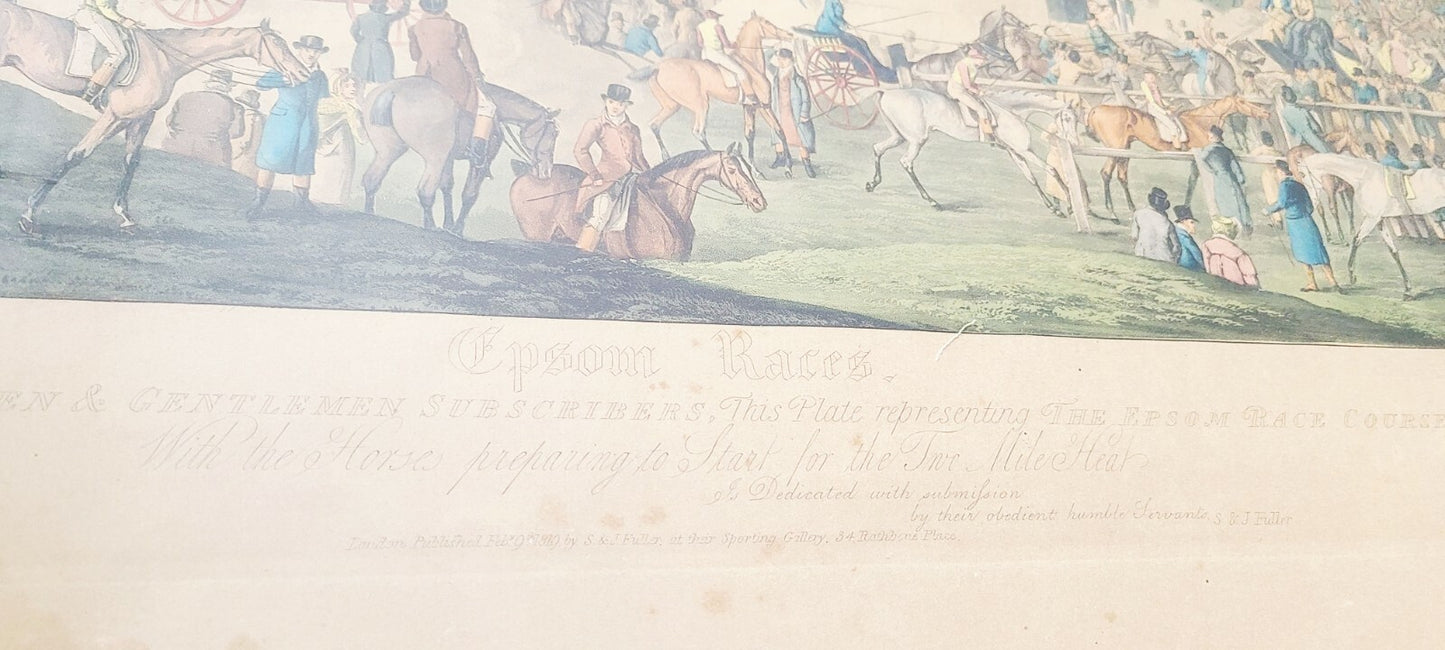 Epsom Races.
EN & GENTLEMEN SUBSCRIBERS, This Plate representing THE EPSOM RACE COURSE
With the Horses preparing to Start for the Two Mile Heat
Is Dedicated with submission
by their obedient humble Servants, S & J Fuller
London, Published Feby. 9th 1819 by S. & J. Fuller, at their Sporting Gallery, 34 Rathbone Place.